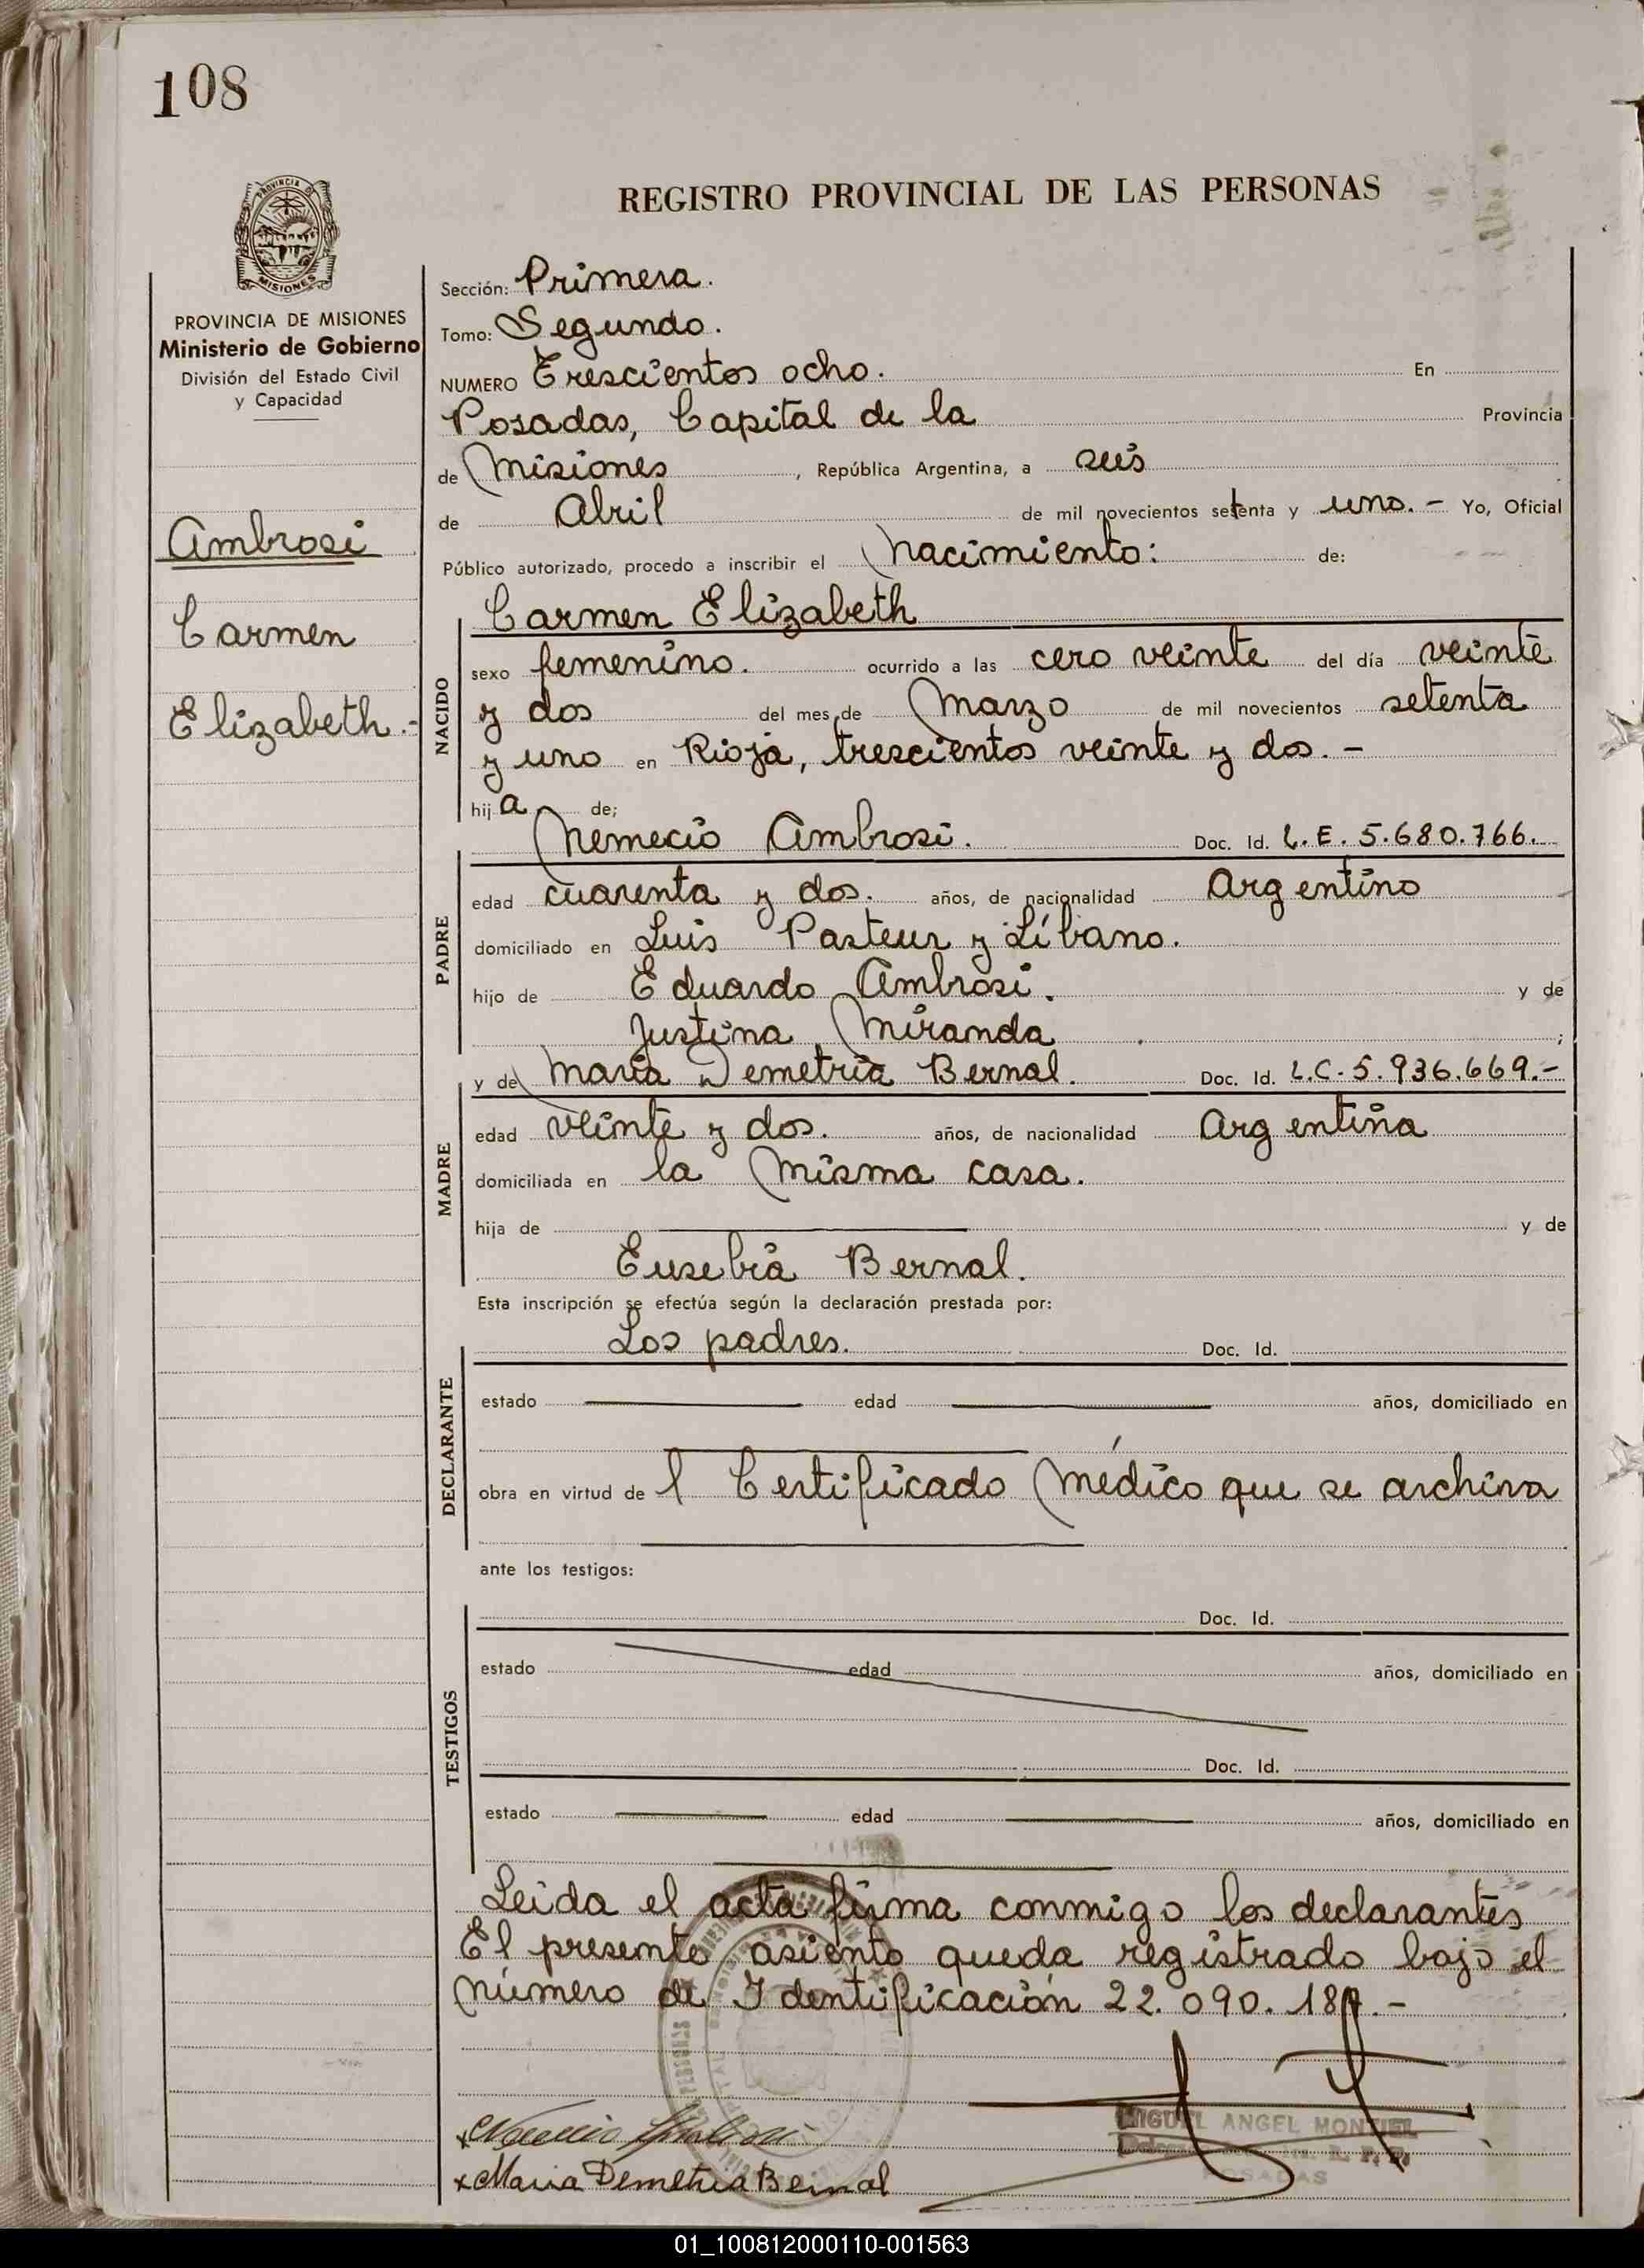 108
REGISTRO PROVINCIAL DE LAS PERSONAS
MISIONES
PROVINCIA DE MISIONES
Ministerio de Gobierno
División del Estado Civil
y Capacidad
Ambrosi
Carmen
Elizabeth.-
Sección: Primera.
Tomo: Segundo.
NUMERO Trescientos ocho. En
Posadas, Capital de la Provincia
de Misiones, República Argentina, a seis
de Abril de mil novecientos setenta y uno.- Yo, Oficial
Público autorizado, procedo a inscribir el Nacimiento: de:
NACIDO
Carmen Elizabeth
sexo femenino. ocurrido a las cero veinte del día veinte
y dos del mes de Marzo de mil novecientos setenta
y uno en Rioja, trescientos veinte y dos.-
hija de;
PADRE
Nemecio Ambrosi. Doc. Id. L.E. 5.680.766.
edad cuarenta y dos. años, de nacionalidad Argentino
domiciliado en Luis Pasteur y Líbano.
hijo de Eduardo Ambrosi. y de
Justina Miranda ;
MADRE
y de Maria Demetria Bernal. Doc. Id. L.C. 5.936.669.-
edad veinte y dos. años, de nacionalidad Argentina
domiciliada en la misma casa.
hija de y de
Eusebia Bernal.
Esta inscripción se efectúa según la declaración prestada por:
DECLARANTE
Los padres. Doc. Id.
estado edad años, domiciliado en
obra en virtud del Certificado Médico que se archiva
ante los testigos:
TESTIGOS
Doc. Id.
estado edad años, domiciliado en
Doc. Id.
estado edad años, domiciliado en
Leida el acta firma conmigo los declarantes
El presente asiento queda registrado bajo el
número de Identificación 22.090.187.-
MIGUEL ANGEL MONTIEL
POSADAS
x Maria Demetria Bernal
01_100812000110-001563